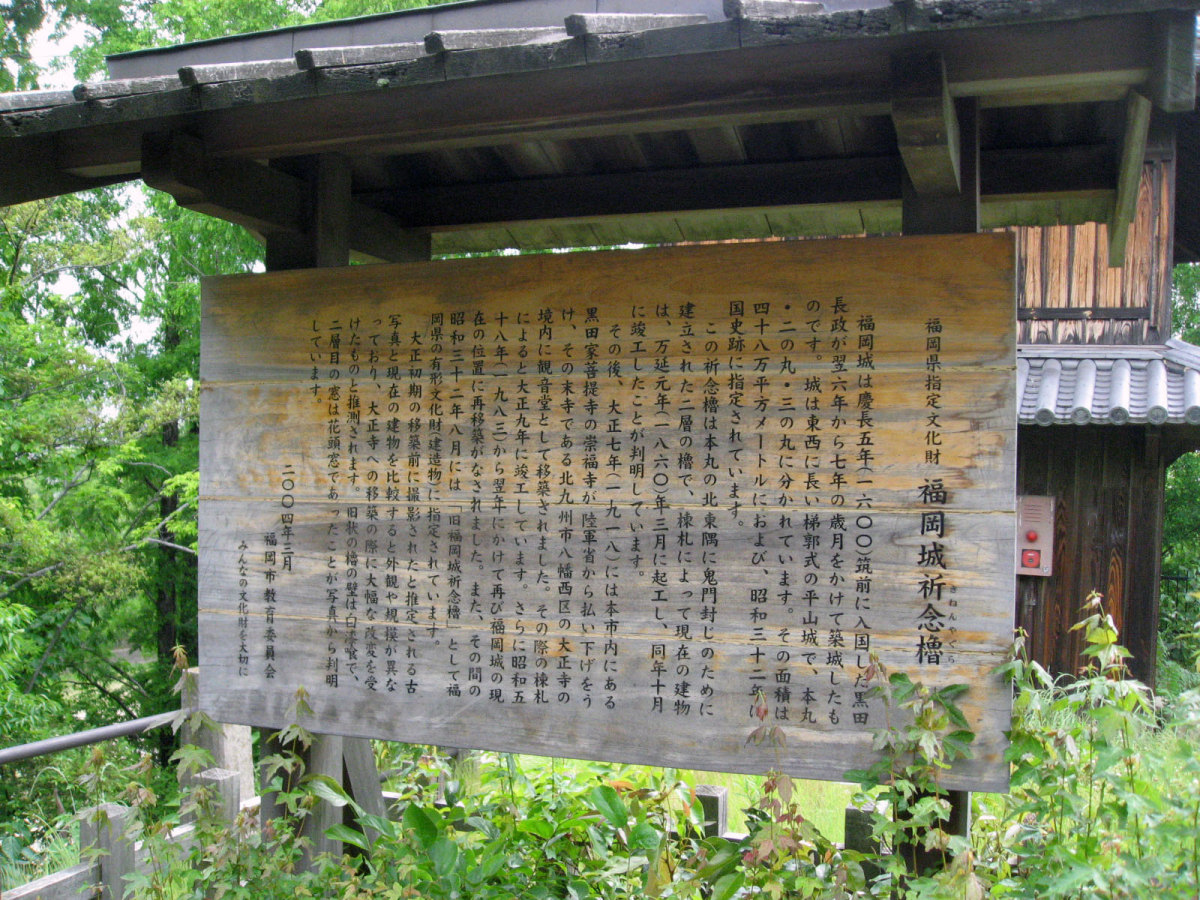 福岡県指定文化財 福岡城祈念櫓
きねんやぐら
福岡城は慶長五年(一六〇〇)筑前に入国した黒田
長政が翌六年から七年の歳月をかけて築城したも
のです。城は東西に長い梯郭式の平山城で、本丸
・二の丸・三の丸に分かれています。その面積は
四十八万平方メートルにおよび、昭和三十二年に
国史跡に指定されています。
この祈念櫓は本丸の北東隅に鬼門封じのために
建立された二層の櫓で、棟札によって現在の建物
は、万延元年(一八六〇)年三月に起工し、同年十月
に竣工したことが判明しています。
その後、大正七年(一九一八)には本市市内にある
黒田家菩提寺の崇福寺が陸軍省から払い下げをう
け、その末寺である北九州市八幡西区の大正寺の
境内に観音堂として移築されました。その際の棟札
によると大正九年に竣工しています。さらに昭和五
十八年(一九八三)から翌年にかけて再び福岡城の現
在の位置に再移築がなされました。また、その間の
昭和三十二年八月には「旧福岡城祈念櫓」として福
岡県の有形文化財建造物に指定されています。
大正初期の移築前に撮影されたと推定される古
写真と現在の建物を比較すると外観や規模が異な
っており、大正寺への移築の際に大幅な改変を受
けたものと推測されます。旧状の櫓の壁は白漆喰で、
二層目の窓は花頭窓であったことが写真から判明
しています。
二〇〇四年三月
福岡市教育委員会
みんなの文化財を大切に